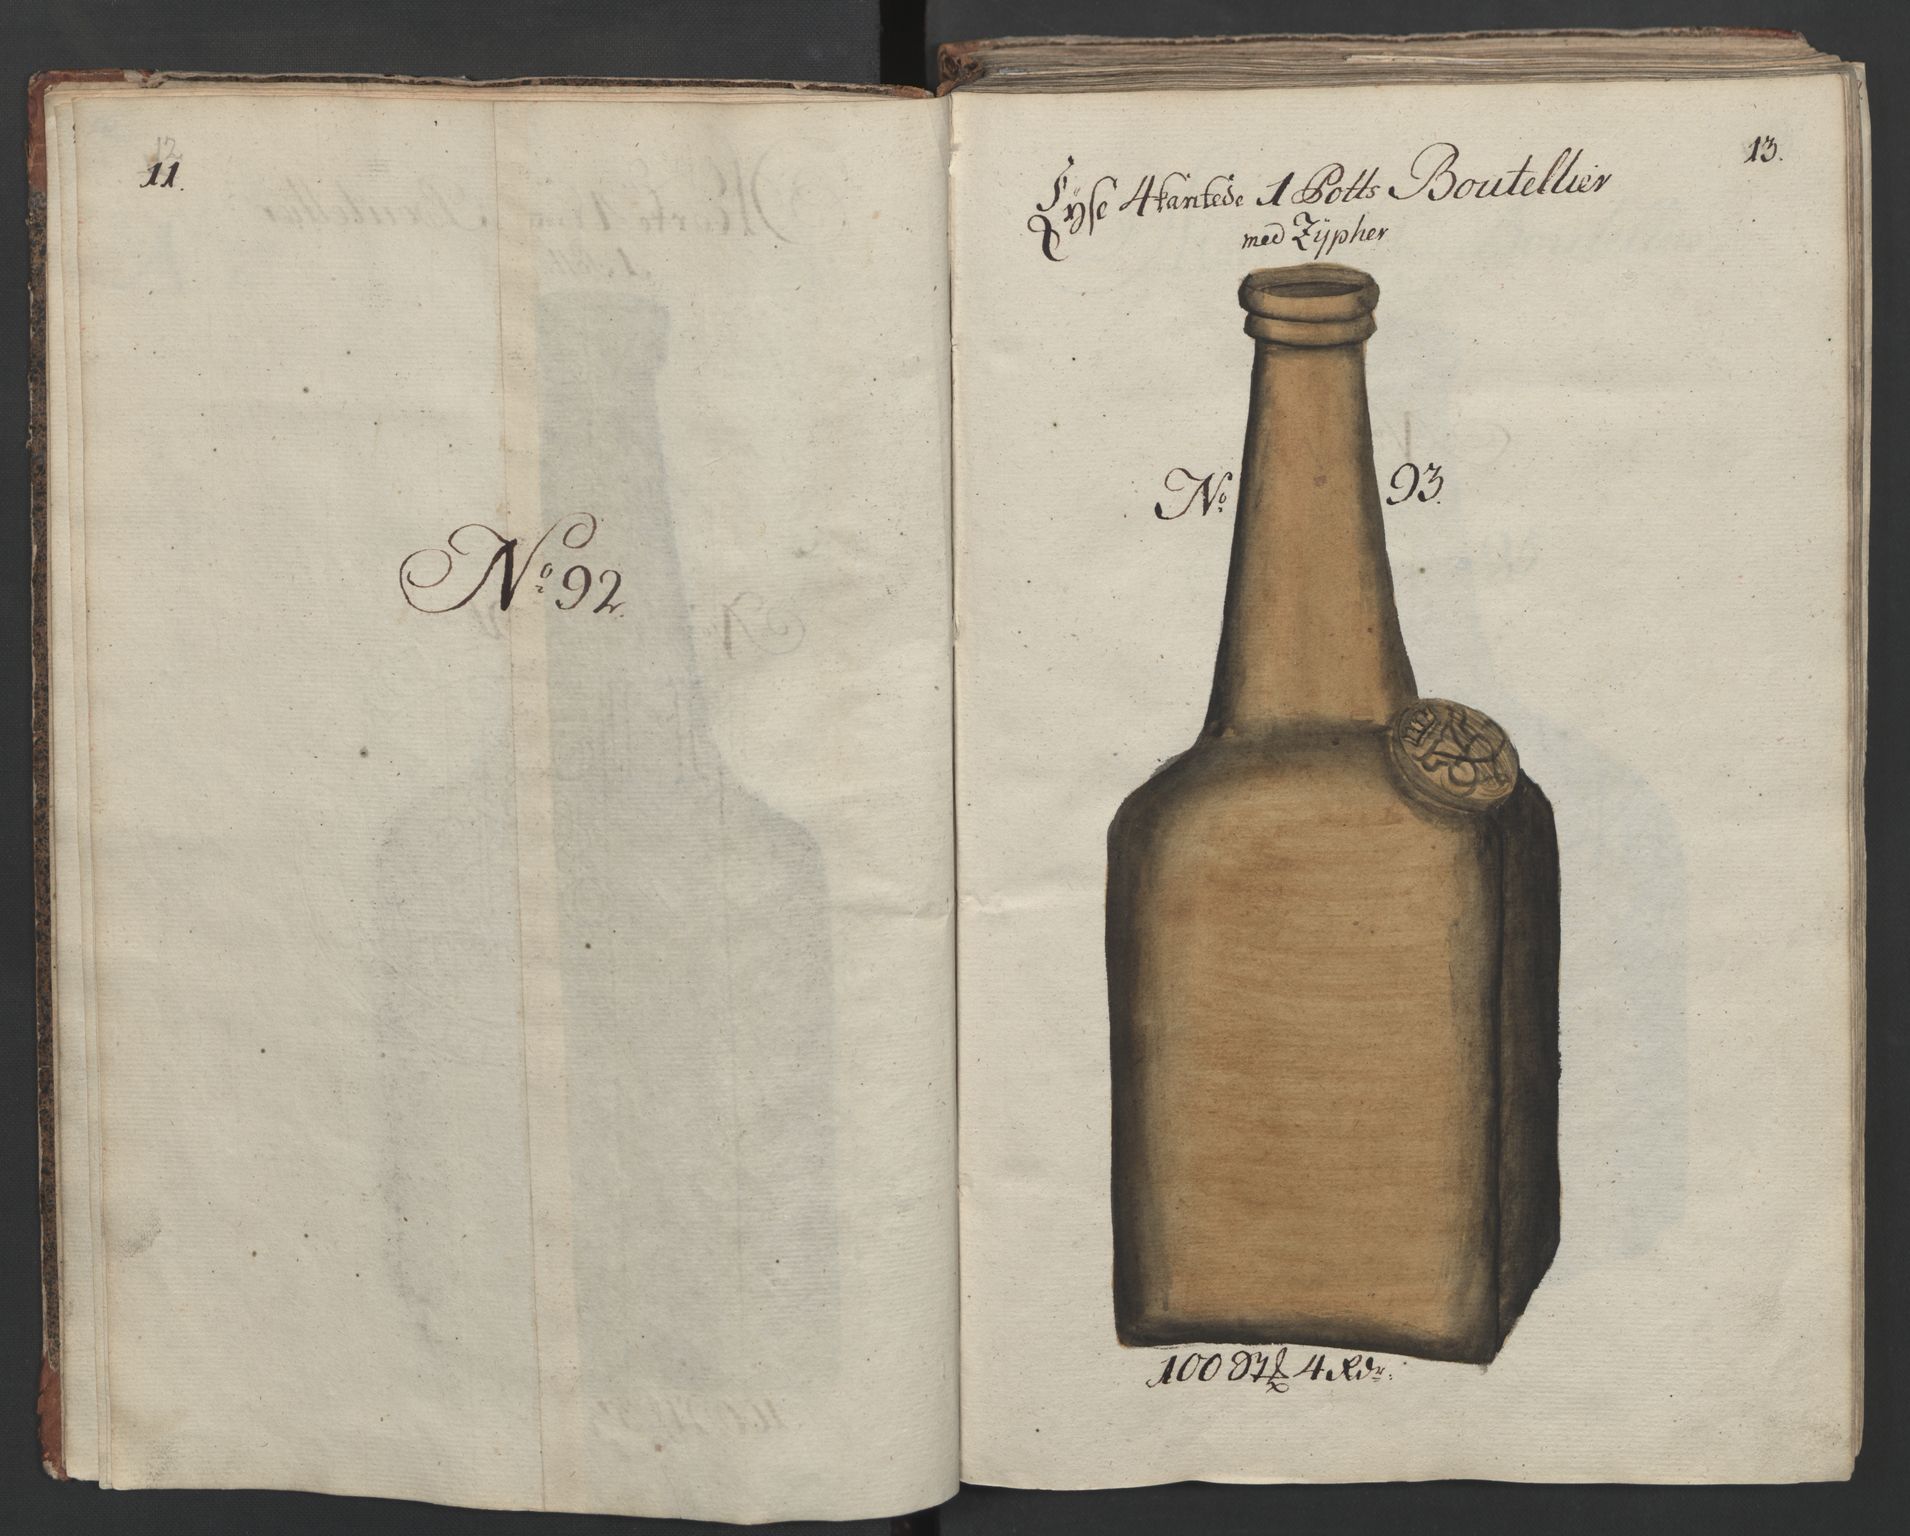 12
11.
No 92.
13.
Lyse 4kantede 1 Potts Boutellier
med Zÿpher
No 93.
100 4 Rdr: